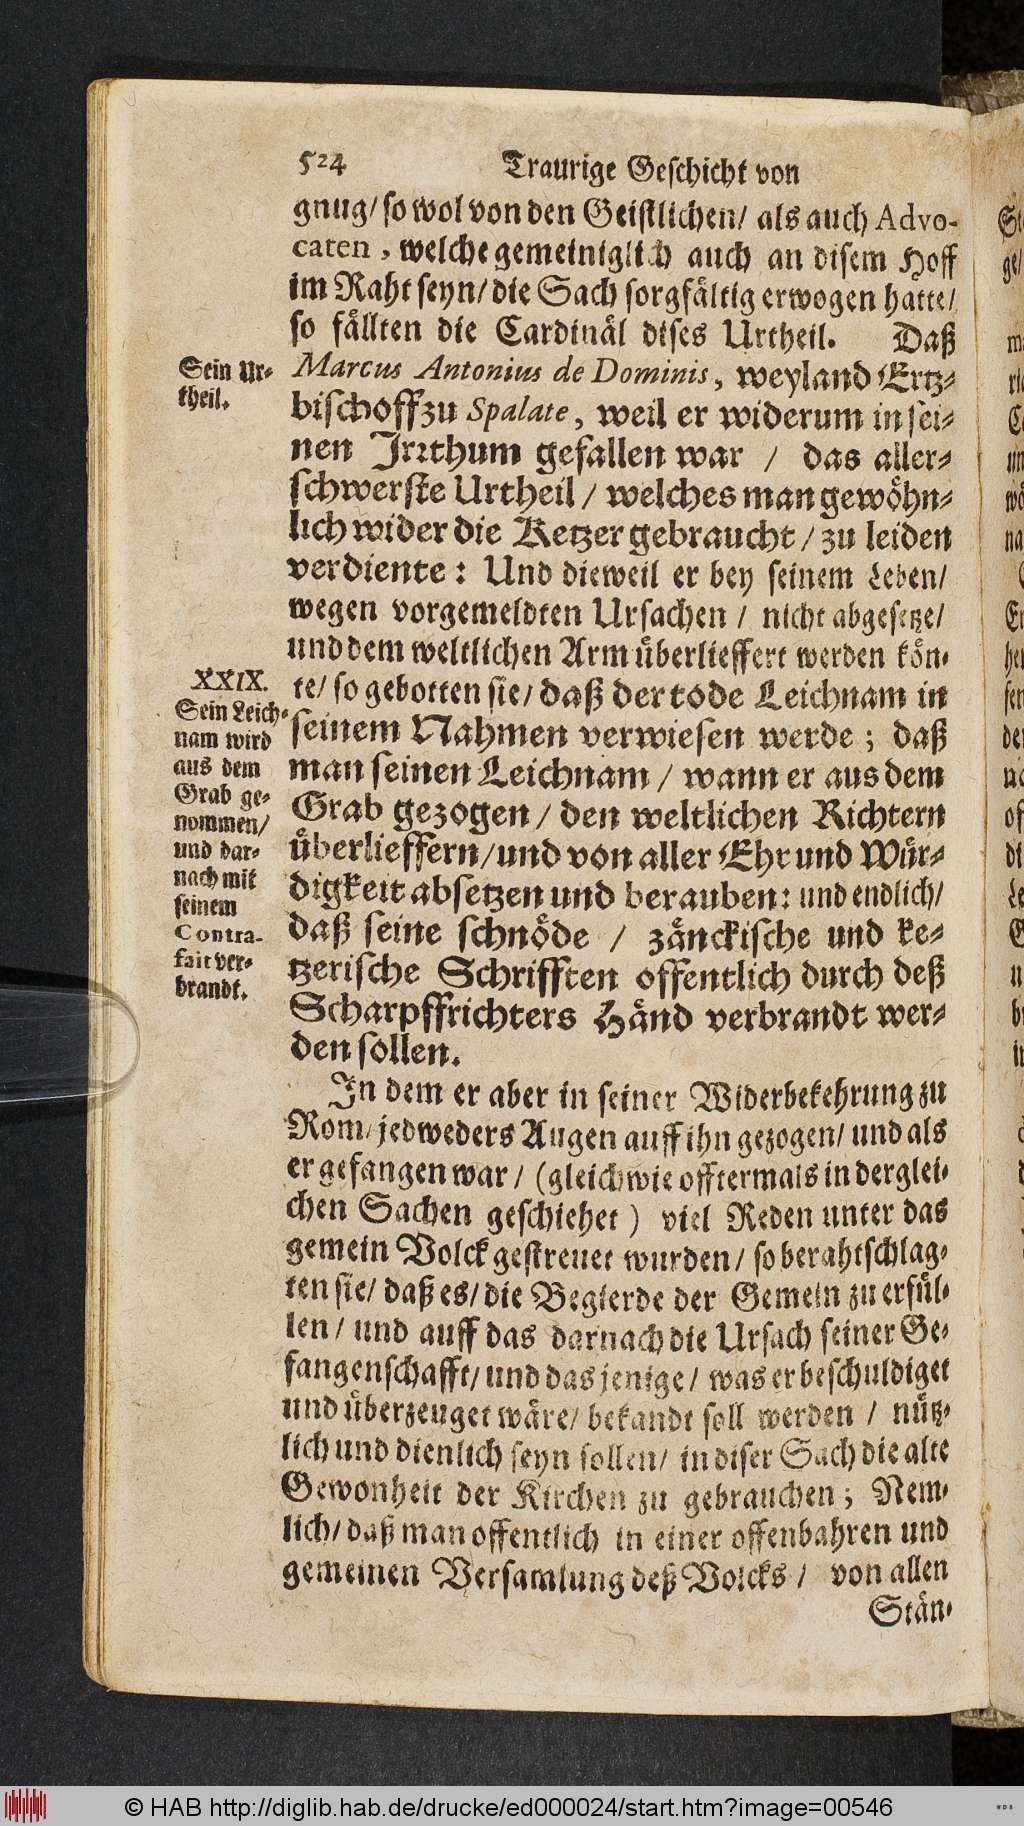 524 Traurige Geschicht von
gnug/ so wol von den Geistlichen/ als auch Advo-
caten, welche gemeiniglich auch an disem Hoff
im Raht seyn/ die Sach sorgfältig erwogen hatte/
so fällten die Cardinäl dises Urtheil. Daß
Marcus Antonius de Dominis, weyland Ertz-
bischoff zu Spalate, weil er widerum in sei-
nen Irrthum gefallen war / das aller-
schwerste Urtheil / welches man gewöhn-
lich wider die Ketzer gebraucht / zu leiden
verdiente: Und dieweil er bey seinem Leben/
wegen vorgemeldten Ursachen / nicht abgesetze/
und dem weltlichen Arm überlieffert werden kön-
te/ so gebotten sie/ daß der tode Leichnam in
seinem Nahmen verwiesen werde; daß
man seinen Leichnam / wann er aus dem
Grab gezogen / den weltlichen Richtern
überlieffern/ und von aller Ehr und Wür-
digkeit absetzen und berauben: und endlich/
daß seine schnöde / zänckische und ke-
tzerische Schrifften offentlich durch deß
Scharpffrichters Händ verbrandt wer-
den sollen.
In dem er aber in seiner Widerbekehrung zu
Rom/ jedweders Augen auff ihn gezogen/ und als
er gefangen war / (gleichwie offtermals in derglei-
chen Sachen geschiehet) viel Reden unter das
gemein Volck gestreuet wurden / so berahtschlag-
ten sie/ daß es/ die Begierde der Gemein zu erfül-
len / und auff das darnach die Ursach seiner Ge-
fangenschafft/ und das jenige / was er beschuldiget
und überzeuget wäre/ bekandt soll werden / nütz-
lich und dienlich seyn sollen/ in diser Sach die alte
Gewonheit der Kirchen zu gebrauchen; Nem-
lich/ daß man offentlich in einer offenbahren und
gemeinen Versamlung deß Volcks / von allen
Stän-
Sein Ur-
theil.
XXIX.
Sein Leich-
nam wird
aus dem
Grab ge-
nommen/
und dar-
nach mit
seinem
Contra-
fait ver-
brandt.
© HAB http://diglib.hab.de/drucke/ed000024/start.htm?image=00546